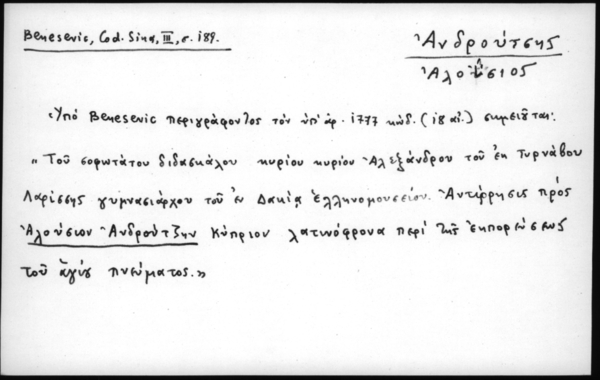 Benesevic, Cod. Sina, III, σ. 189.
Ἀνδρούτσης
Ἀλοΰσιος
Ὑπό Benesevic περιγράφοντος τόν ὑπ' ἀρ. 1777 κώδ. (18 αἰ.) σημειοῦται:
„ Τοῦ σοφωτάτου διδασκάλου κυρίου κυρίου Ἀλεξάνδρου τοῦ ἐκ Τυρνάβου
Λαρίσσης γυμνασιάρχου τοῦ ἐν Δακίᾳ ἑλληνομουσείου. Ἀντίρρησις πρός
Ἀλοΰσιον Ἀνδρούτζην Κύπριον λατινόφρονα περί τῆς ἐκπορεύσεως
τοῦ ἁγίου πνεύματος.»